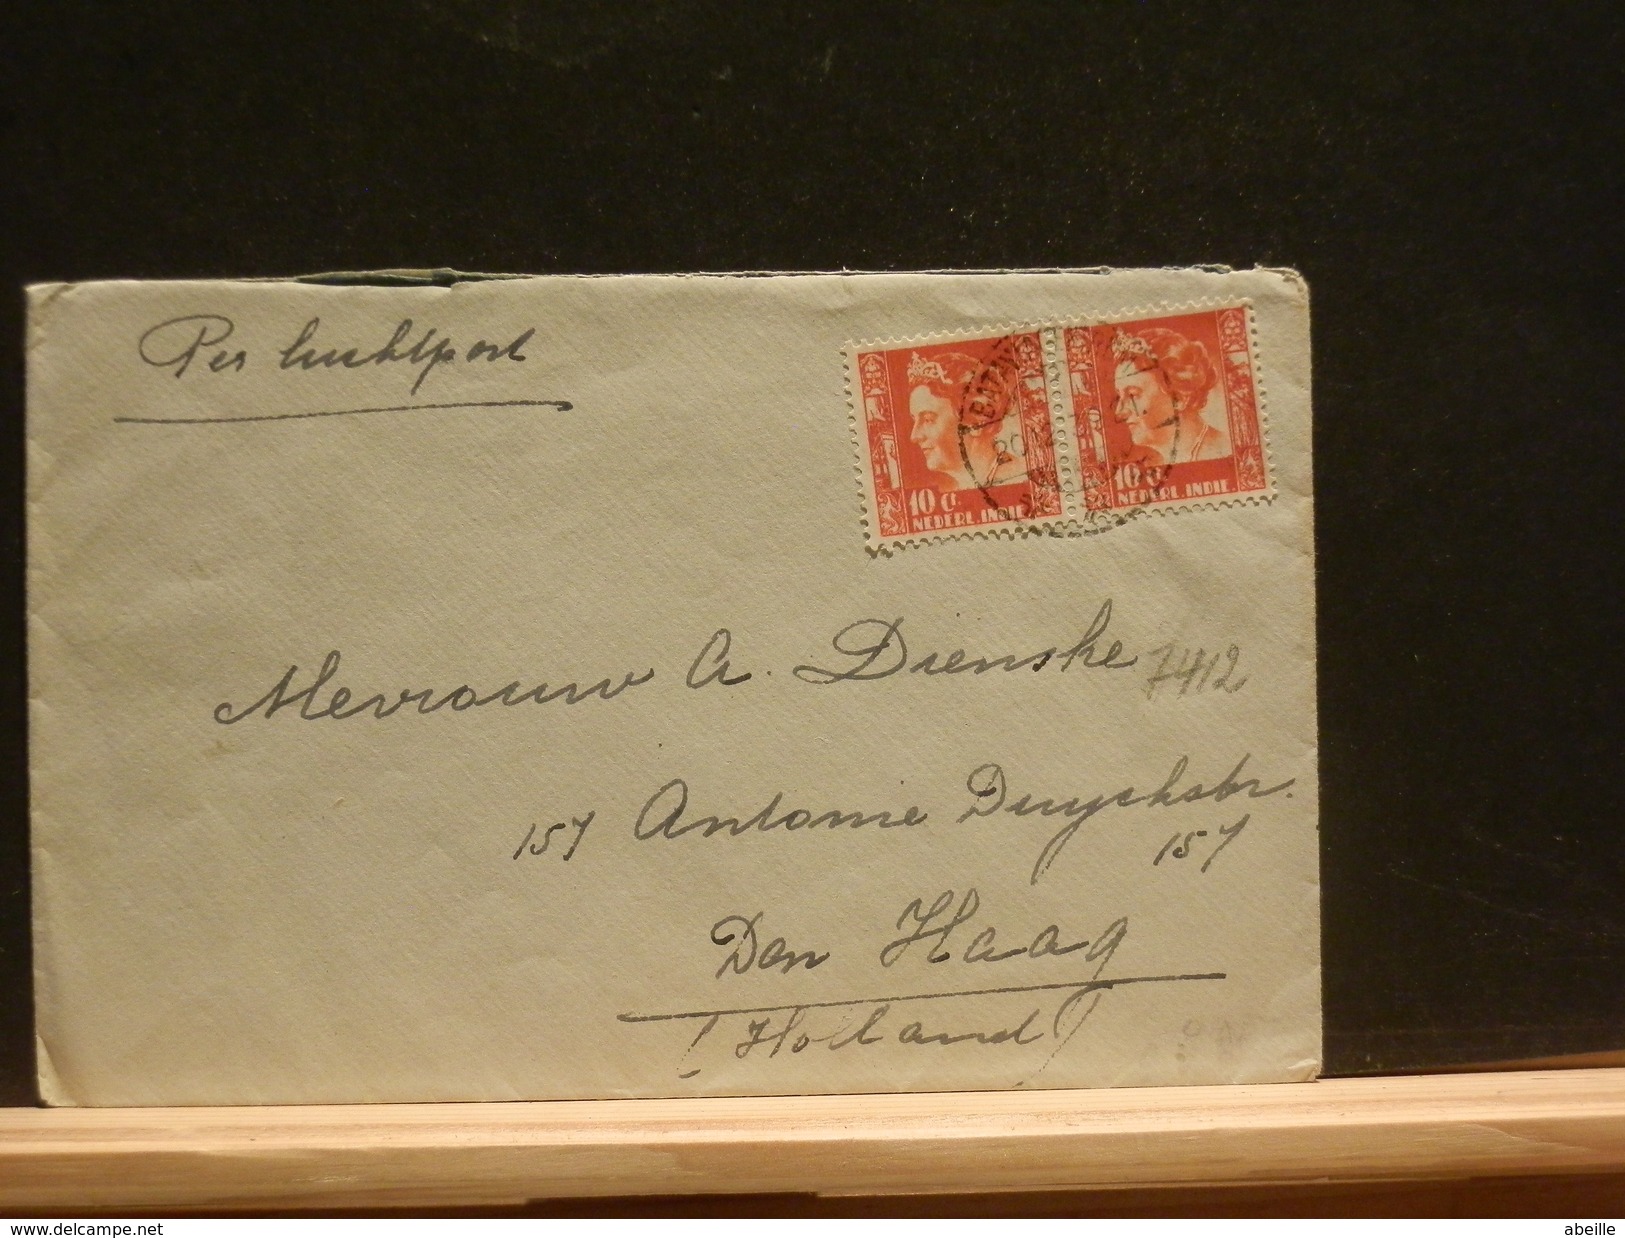 Per luchtpost
BATAV
20.12.39.21.
10 ct
NEDERL. INDIE
10 ct
NEDERL. INDIE.
Mevrouw A. Dienske
7412
157 Antonie Duyckstr.
157
Den Haag
(Holland)
delcampe.net
abeille